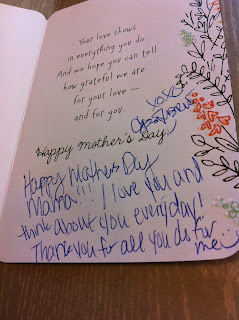 Your love shows
in everything you do
And we hope you can tell
how grateful we are
for your love —
and for you.
XOXO
Happy Mother's Day
Happy Mothers Day
Mama!!! I love you and
think about you everyday!
Thank you for all you do for
me :)